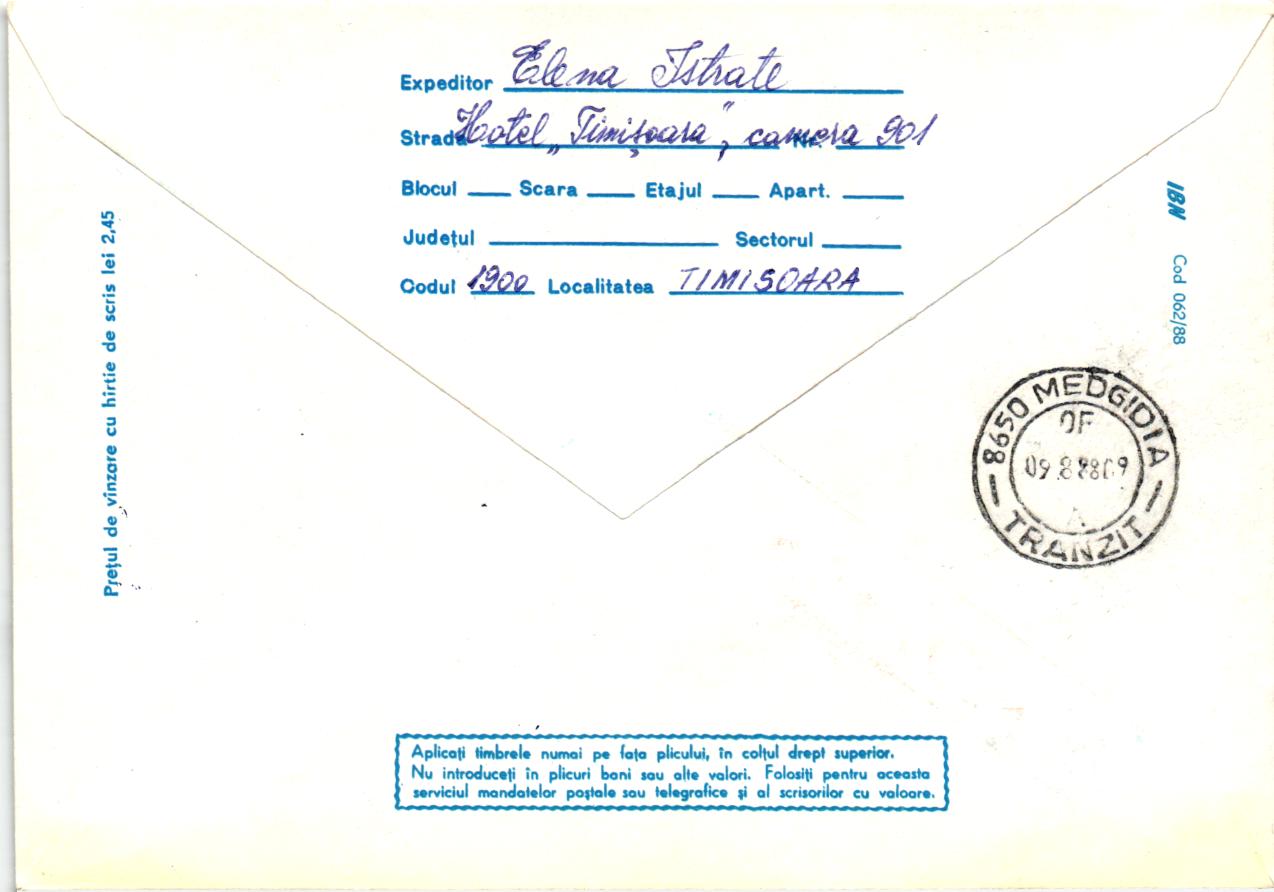 Expeditor Elena Istrate
Strada Hotel „Timișoara”, camera 901 Nr.
Blocul Scara Etajul Apart.
Județul Sectorul
Codul 1900 Localitatea TIMISOARA
Prețul de vînzare cu hîrtie de scris lei 2,45
IBN Cod 062/88
8650 MEDGIDIA
OF
09.8 88 09
A
TRANZIT
Aplicați timbrele numai pe fața plicului, în colțul drept superior.
Nu introduceți în plicuri bani sau alte valori. Folosiți pentru aceasta
serviciul mandatelor poștale sau telegrafice și al scrisorilor cu valoare.